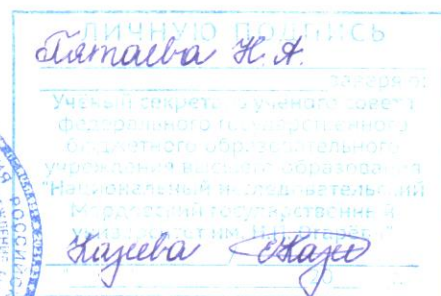 ЛИЧНУЮ ПОДПИСЬ
Пятаева Н. А.
заверяю:
Ученый секретарь ученого совета
федерального государственного
бюджетного образовательного
учреждения высшего образования
"Национальный исследовательский
Мордовский государственный
университет им. Н.П. Огарёва"